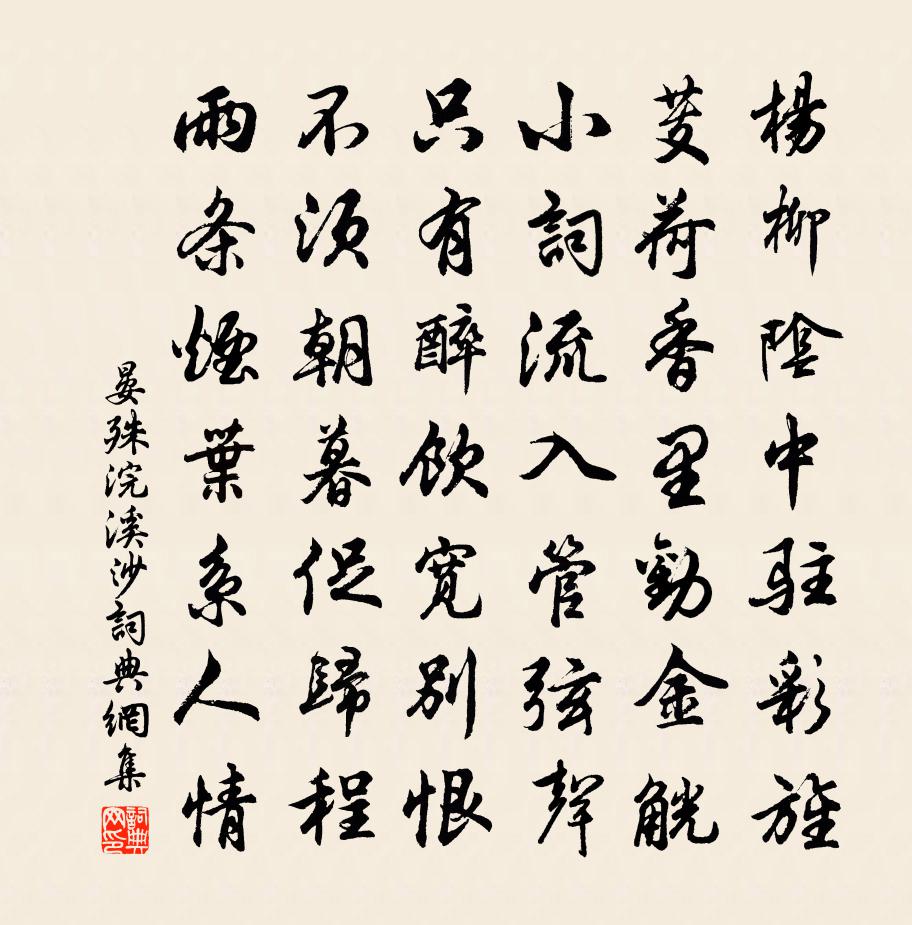 楊柳陰中駐彩旌
芰荷香里勸金觥
小詞流入管弦聲
只有醉飲寬別恨
不須朝暮促歸程
雨条煙葉系人情
晏殊浣溪沙詞典網集
詞典网印